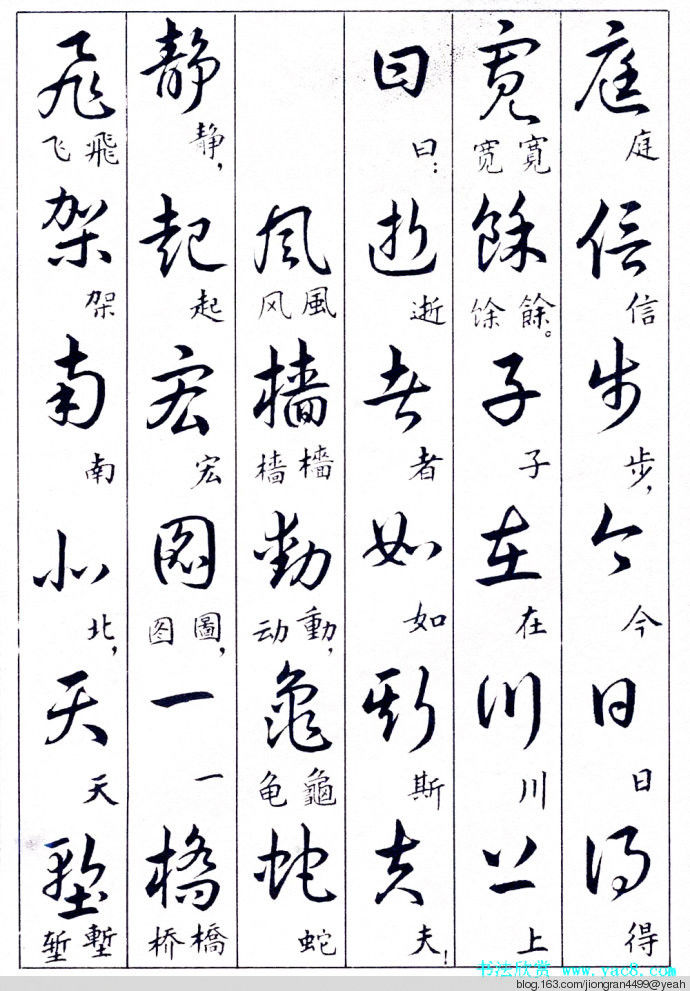 庭信步今日得
庭 信 步， 今 日 得
寬餘子在川上
寬宽 餘。馀 子 在 川 上
曰逝者如斯夫
曰： 逝 者 如 斯 夫！
風檣動龜蛇
風风 檣樯 動，动 龜龟 蛇
静起宏圖一橋
静， 起 宏 圖，图 一 橋桥
飛架南北天塹
飛飞 架 南 北， 天 塹堑
书法欣赏 www.yac8.com
blog.163.com/jiongran4499@yeah